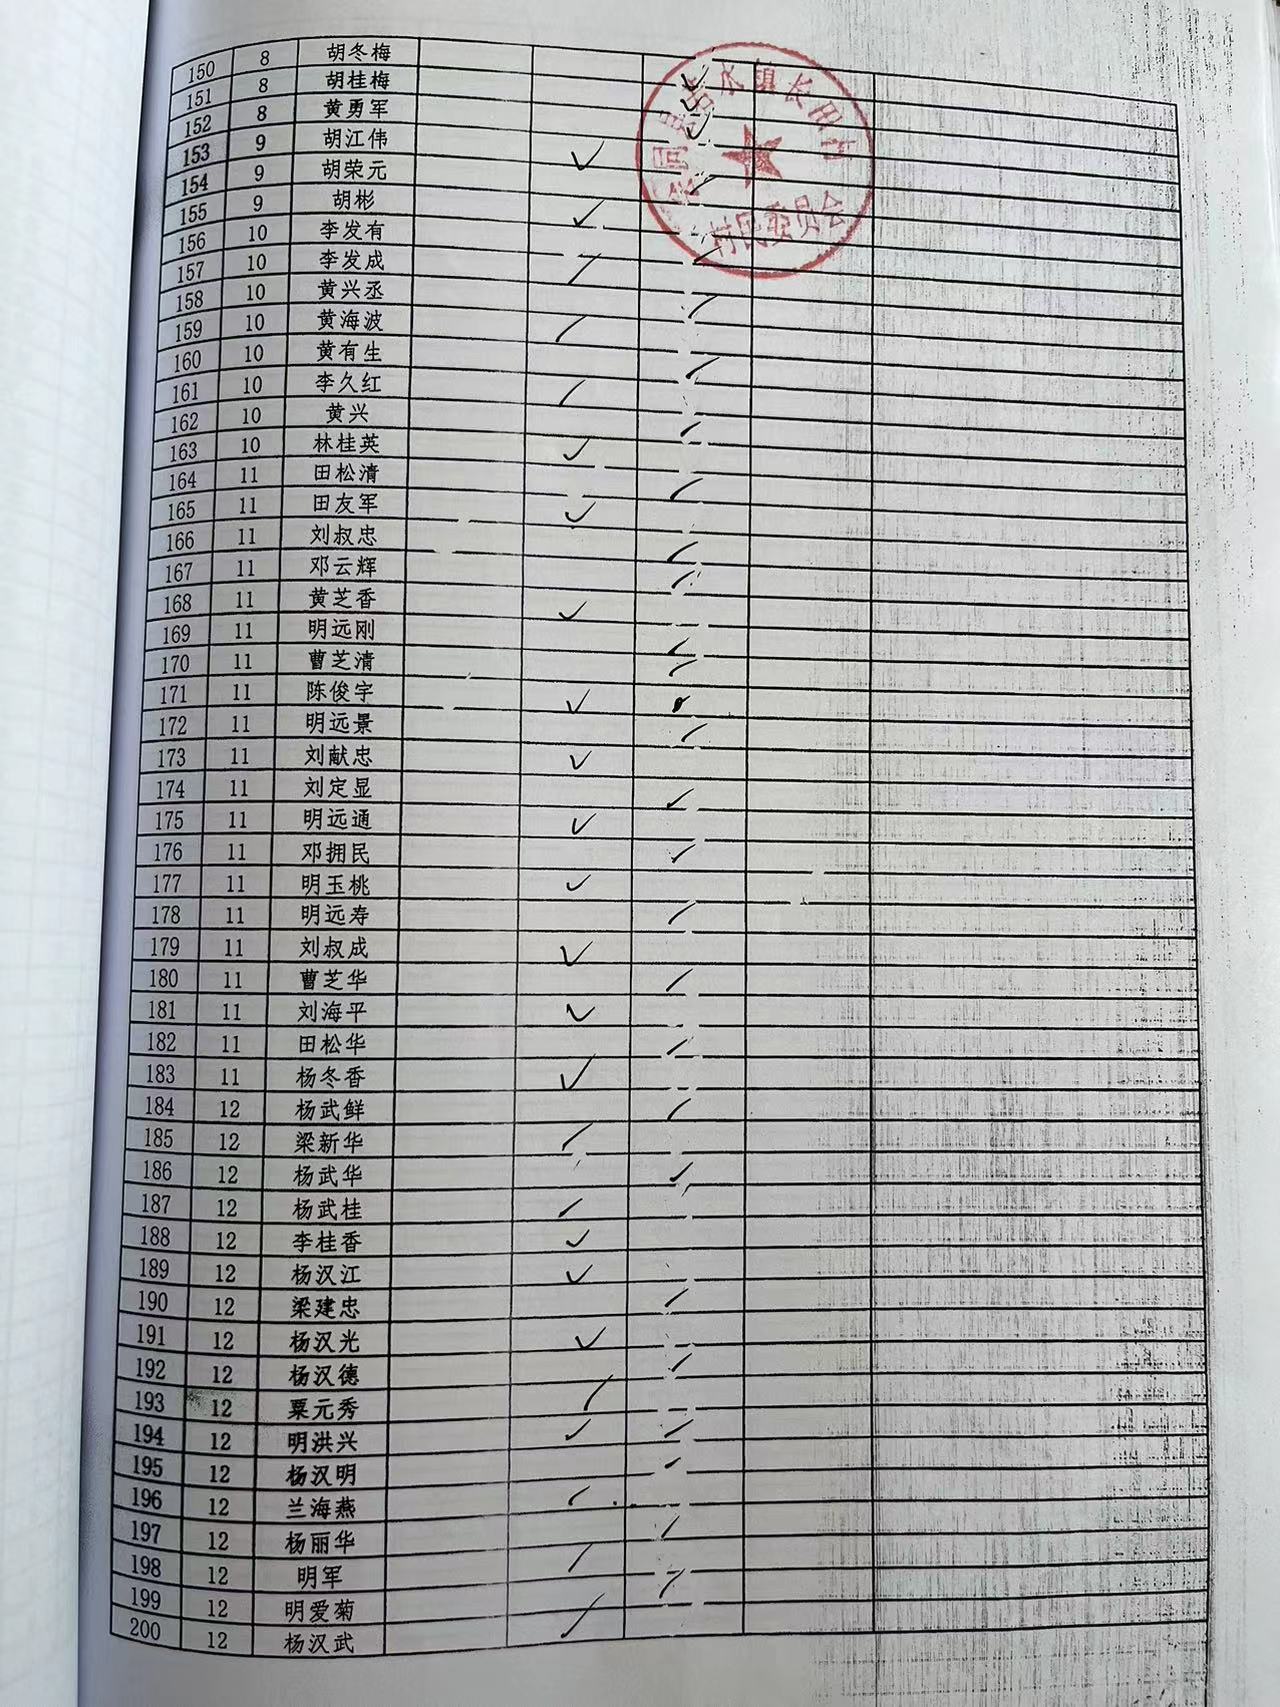 150 8 胡冬梅
151 8 胡桂梅
152 8 黄勇军
153 9 胡江伟
154 9 胡荣元
155 9 胡彬
156 10 李发有
157 10 李发成
158 10 黄兴丞
159 10 黄海波
160 10 黄有生
161 10 李久红
162 10 黄兴
163 10 林桂英
164 11 田松清
165 11 田友军
166 11 刘叔忠
167 11 邓云辉
168 11 黄芝香
169 11 明远刚
170 11 曹芝清
171 11 陈俊宇
172 11 明远景
173 11 刘献忠
174 11 刘定显
175 11 明远通
176 11 邓拥民
177 11 明玉桃
178 11 明远寿
179 11 刘叔成
180 11 曹芝华
181 11 刘海平
182 11 田松华
183 11 杨冬香
184 12 杨武鲜
185 12 梁新华
186 12 杨武华
187 12 杨武桂
188 12 李桂香
189 12 杨汉江
190 12 梁建忠
191 12 杨汉光
192 12 杨汉德
193 12 粟元秀
194 12 明洪兴
195 12 杨汉明
196 12 兰海燕
197 12 杨丽华
198 12 明军
199 12 明爱菊
200 12 杨汉武
会同县若水镇长田村
村民委员会